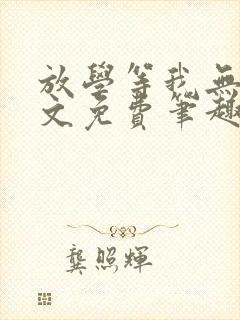 放學等我無
文免費筆趣
龔照輝